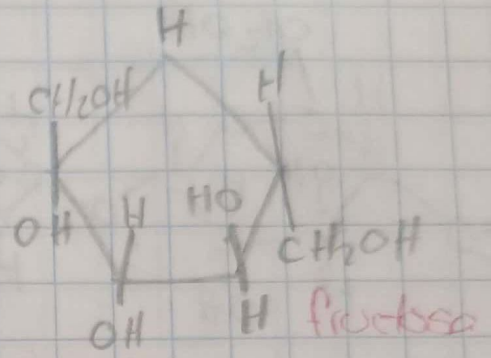 H
CH2OH H
H HO
OH CH2OH
OH H fructosa